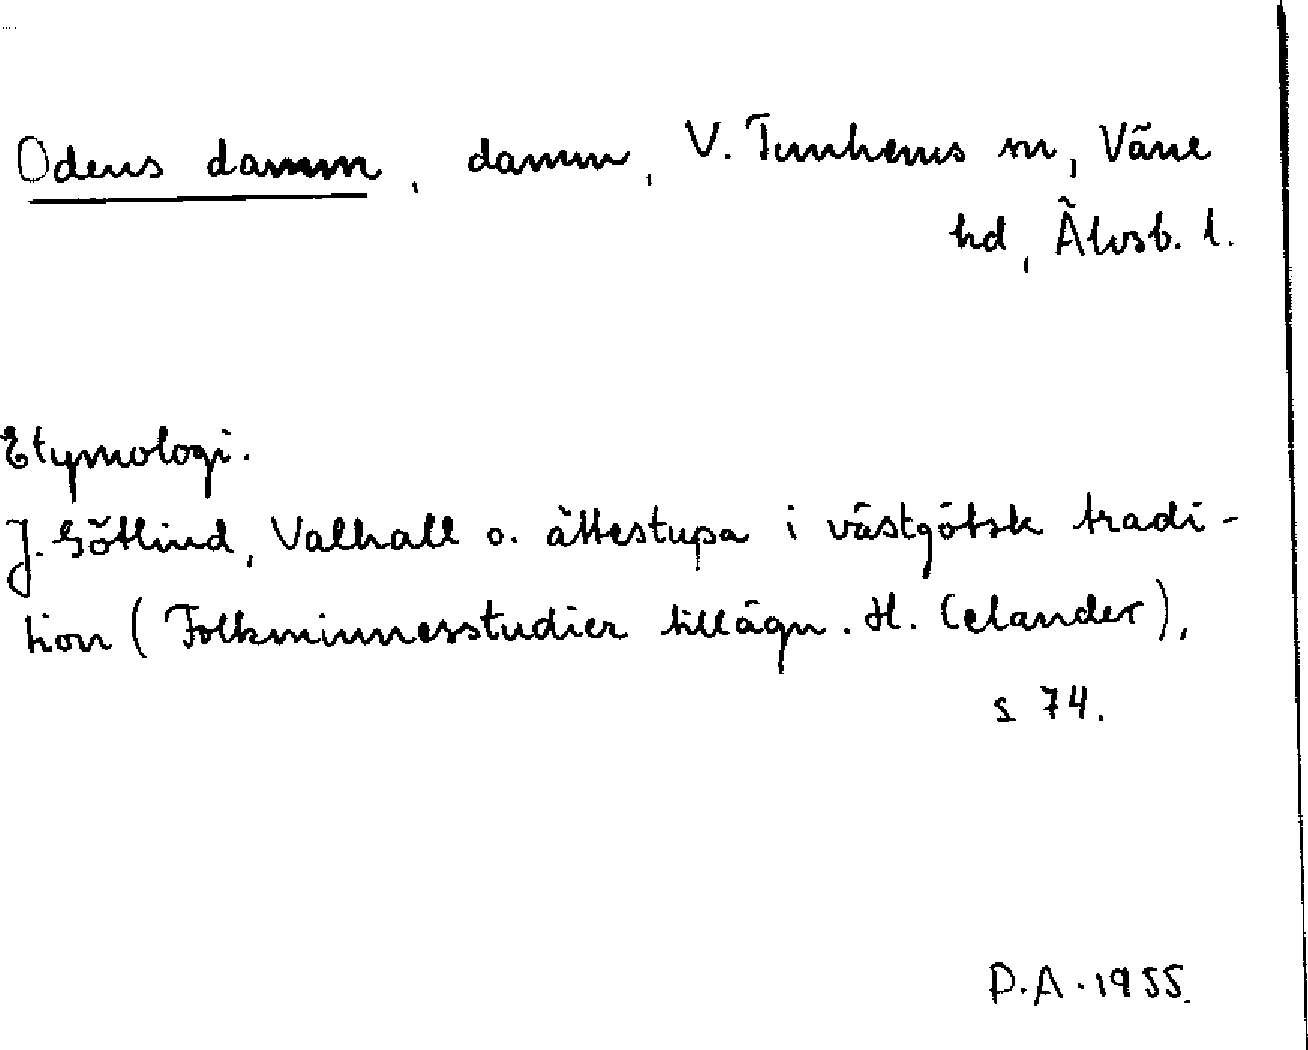 Odens damm, damm, V. Tunhems sn, Väne
hd, Älvsb. l.
Etymologi.
J. Götlind, Valhall o. ättestupa i västgötsk tradi-
tion (Folkminnesstudier tillägn. H. Celander),
s 74.
P.A. 1955.